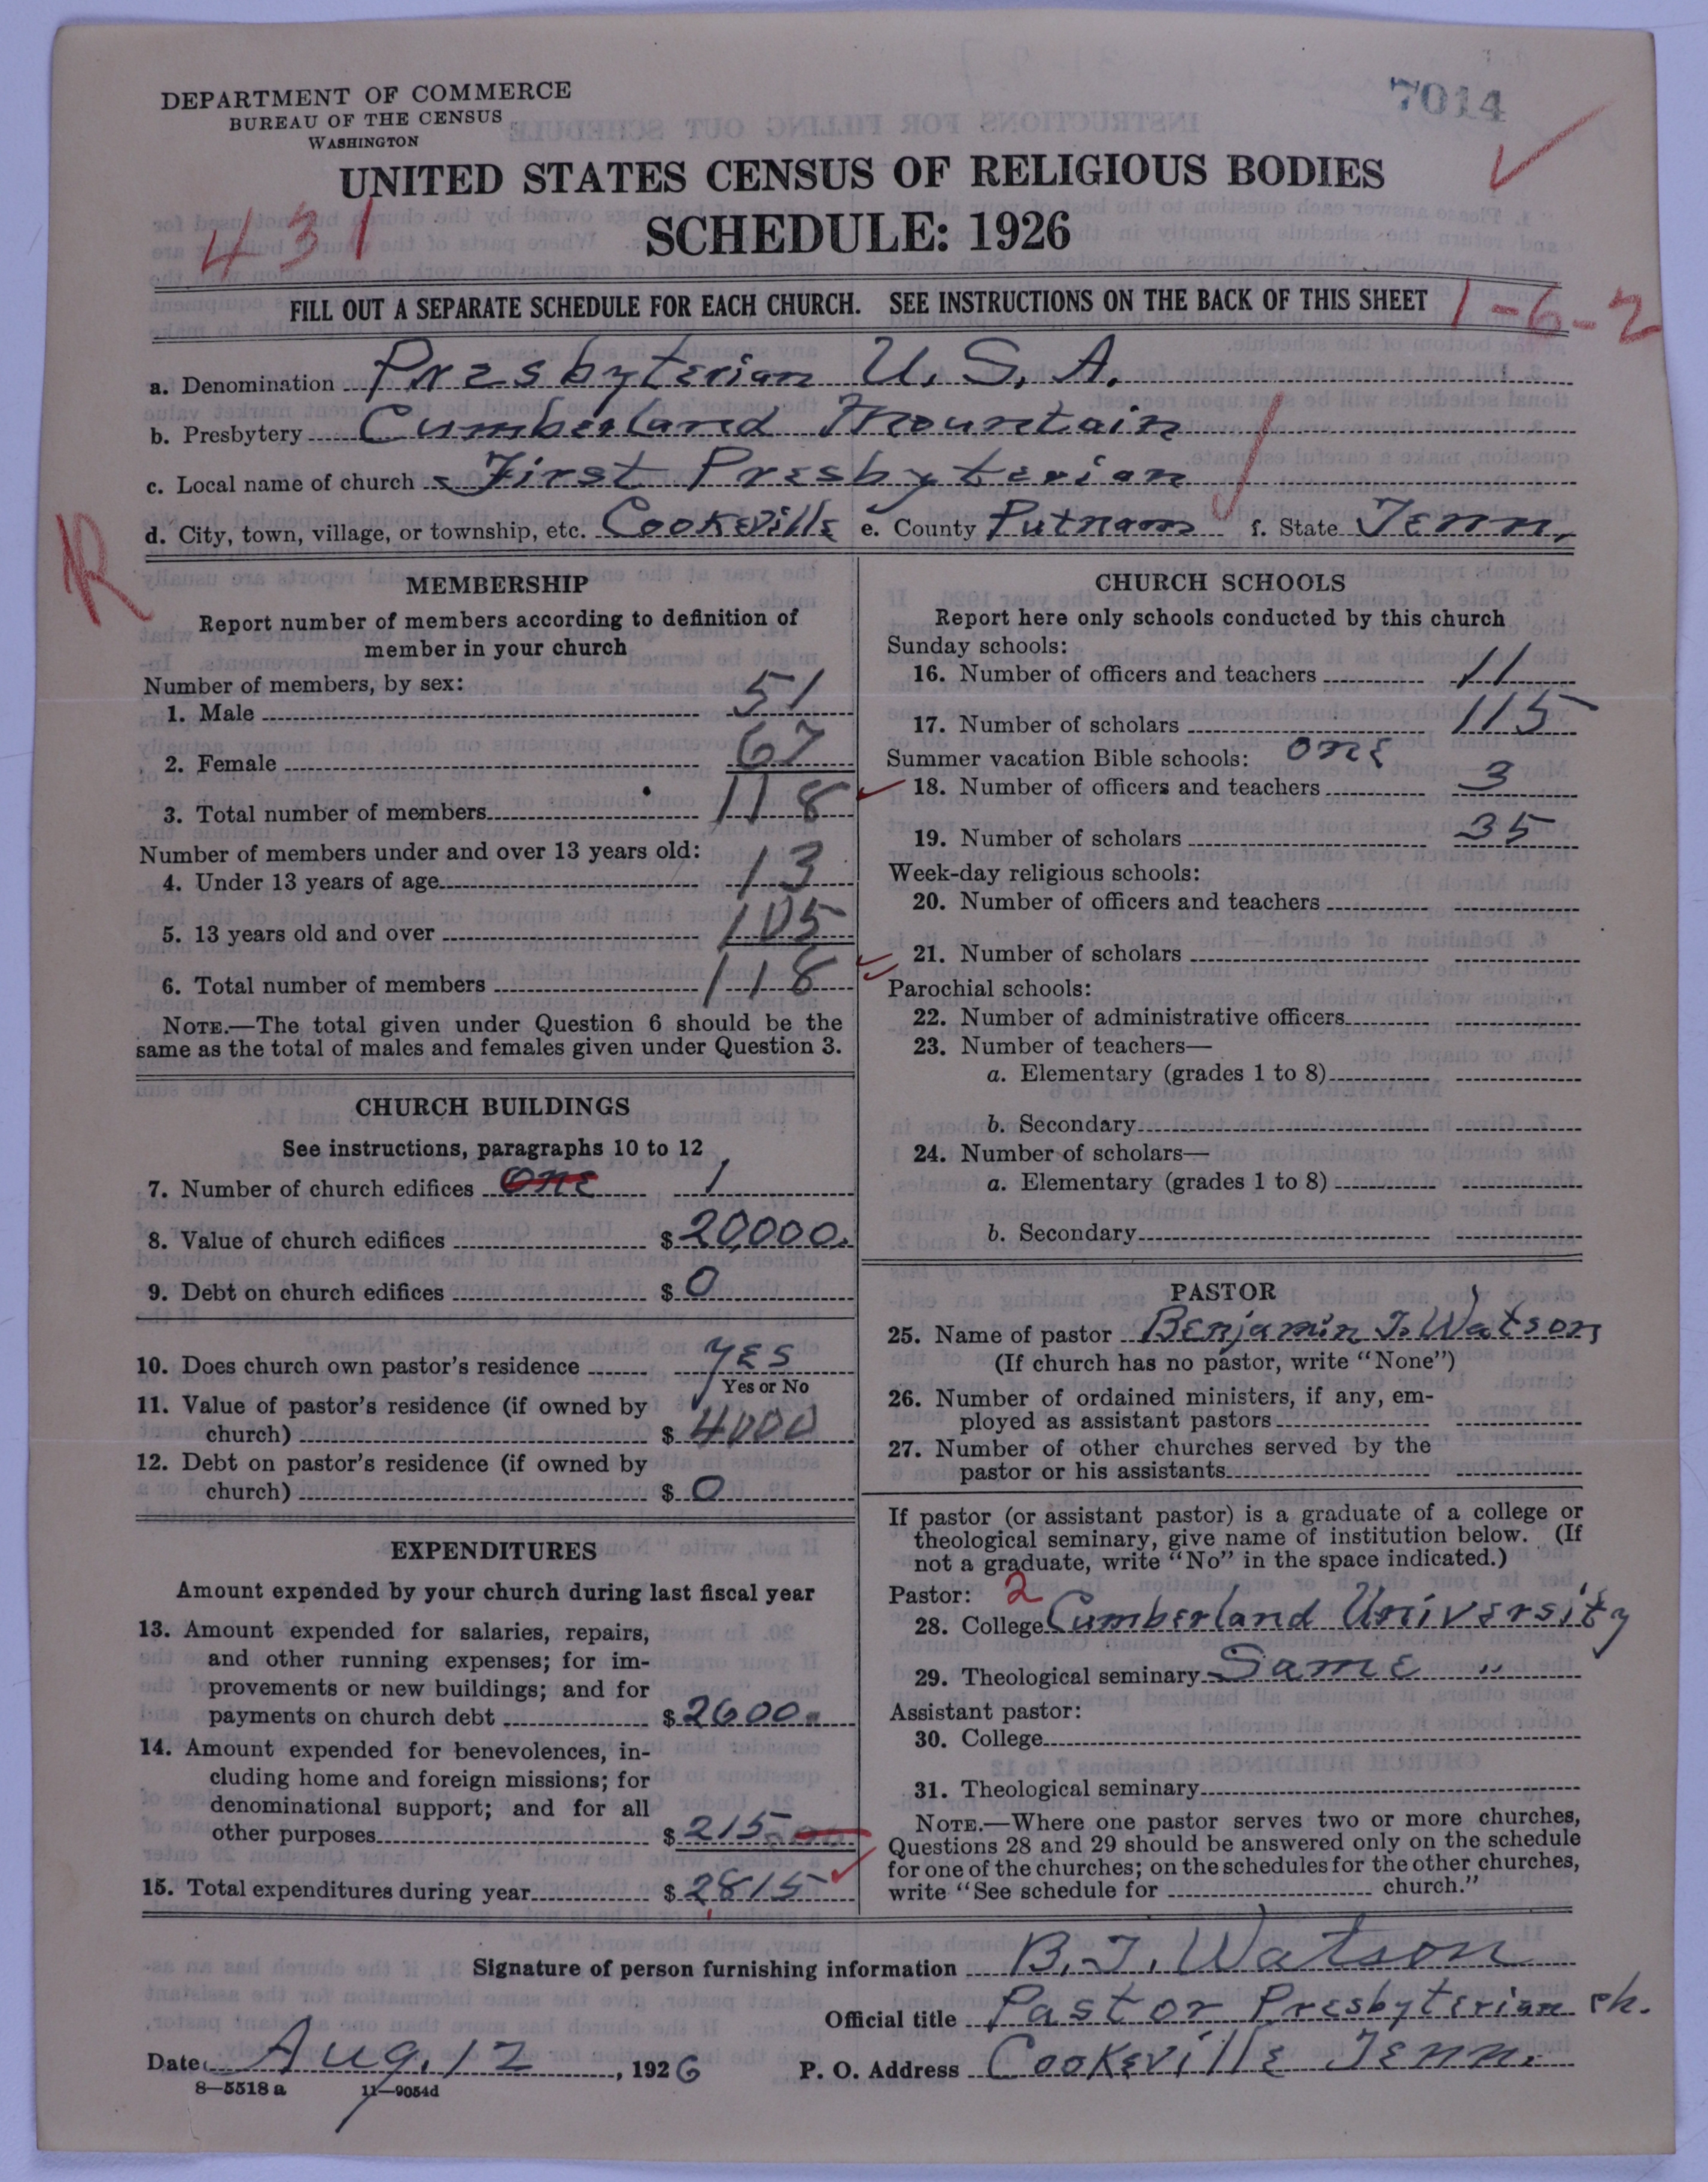 DEPARTMENT OF COMMERCE
BUREAU OF THE CENSUS
WASHINGTON
7014
UNITED STATES CENSUS OF RELIGIOUS BODIES
SCHEDULE: 1926
431
FILL OUT A SEPARATE SCHEDULE FOR EACH CHURCH. SEE INSTRUCTIONS ON THE BACK OF THIS SHEET
1-6-2
a. Denomination Presbyterian U. S. A.
b. Presbytery Cumberland Mountain
c. Local name of church First Presbyterian
d. City, town, village, or township, etc. Cookeville e. County Putnam f. State Tenn.
R
MEMBERSHIP
Report number of members according to definition of
member in your church
Number of members, by sex:
1. Male 51
2. Female 67
3. Total number of members 118
Number of members under and over 13 years old:
4. Under 13 years of age 13
5. 13 years old and over 105
6. Total number of members 118
NOTE.—The total given under Question 6 should be the
same as the total of males and females given under Question 3.
CHURCH BUILDINGS
See instructions, paragraphs 10 to 12
7. Number of church edifices one 1
8. Value of church edifices $ 20,000.
9. Debt on church edifices $ 0
10. Does church own pastor's residence yes
Yes or No
11. Value of pastor's residence (if owned by
church) $ 4000
12. Debt on pastor's residence (if owned by
church) $ 0
EXPENDITURES
Amount expended by your church during last fiscal year
13. Amount expended for salaries, repairs,
and other running expenses; for im-
provements or new buildings; and for
payments on church debt $ 2600.
14. Amount expended for benevolences, in-
cluding home and foreign missions; for
denominational support; and for all
other purposes $ 215.00
15. Total expenditures during year $ 2815
CHURCH SCHOOLS
Report here only schools conducted by this church
Sunday schools:
16. Number of officers and teachers 11
17. Number of scholars 115
Summer vacation Bible schools: one
18. Number of officers and teachers 3
19. Number of scholars 35
Week-day religious schools:
20. Number of officers and teachers
21. Number of scholars
Parochial schools:
22. Number of administrative officers
23. Number of teachers—
a. Elementary (grades 1 to 8)
b. Secondary
24. Number of scholars—
a. Elementary (grades 1 to 8)
b. Secondary
PASTOR
25. Name of pastor Benjamin T. Watson
(If church has no pastor, write "None")
26. Number of ordained ministers, if any, em-
ployed as assistant pastors
27. Number of other churches served by the
pastor or his assistants
If pastor (or assistant pastor) is a graduate of a college or
theological seminary, give name of institution below. (If
not a graduate, write "No" in the space indicated.)
Pastor: 2
28. College Cumberland University
29. Theological seminary Same "
Assistant pastor:
30. College
31. Theological seminary
NOTE.—Where one pastor serves two or more churches,
Questions 28 and 29 should be answered only on the schedule
for one of the churches; on the schedules for the other churches,
write "See schedule for church."
Signature of person furnishing information B. T. Watson
Official title Pastor Presbyterian ch.
Date Aug. 12, 1926 P. O. Address Cookeville Tenn.
8—5518 a 11—9054d